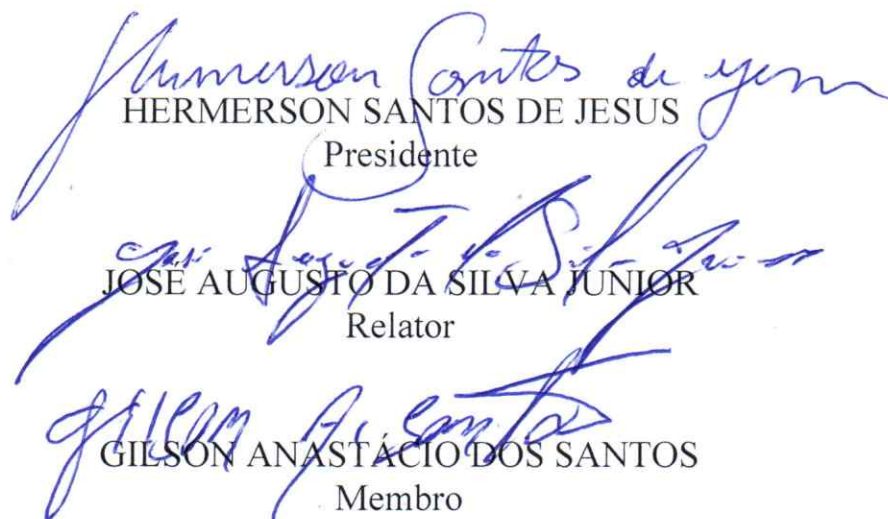 Hermerson Santos de Jesus
HERMERSON SANTOS DE JESUS
Presidente
José Augusto da Silva Junior
JOSÉ AUGUSTO DA SILVA JUNIOR
Relator
Gilson A. Santos
GILSON ANASTÁCIO DOS SANTOS
Membro